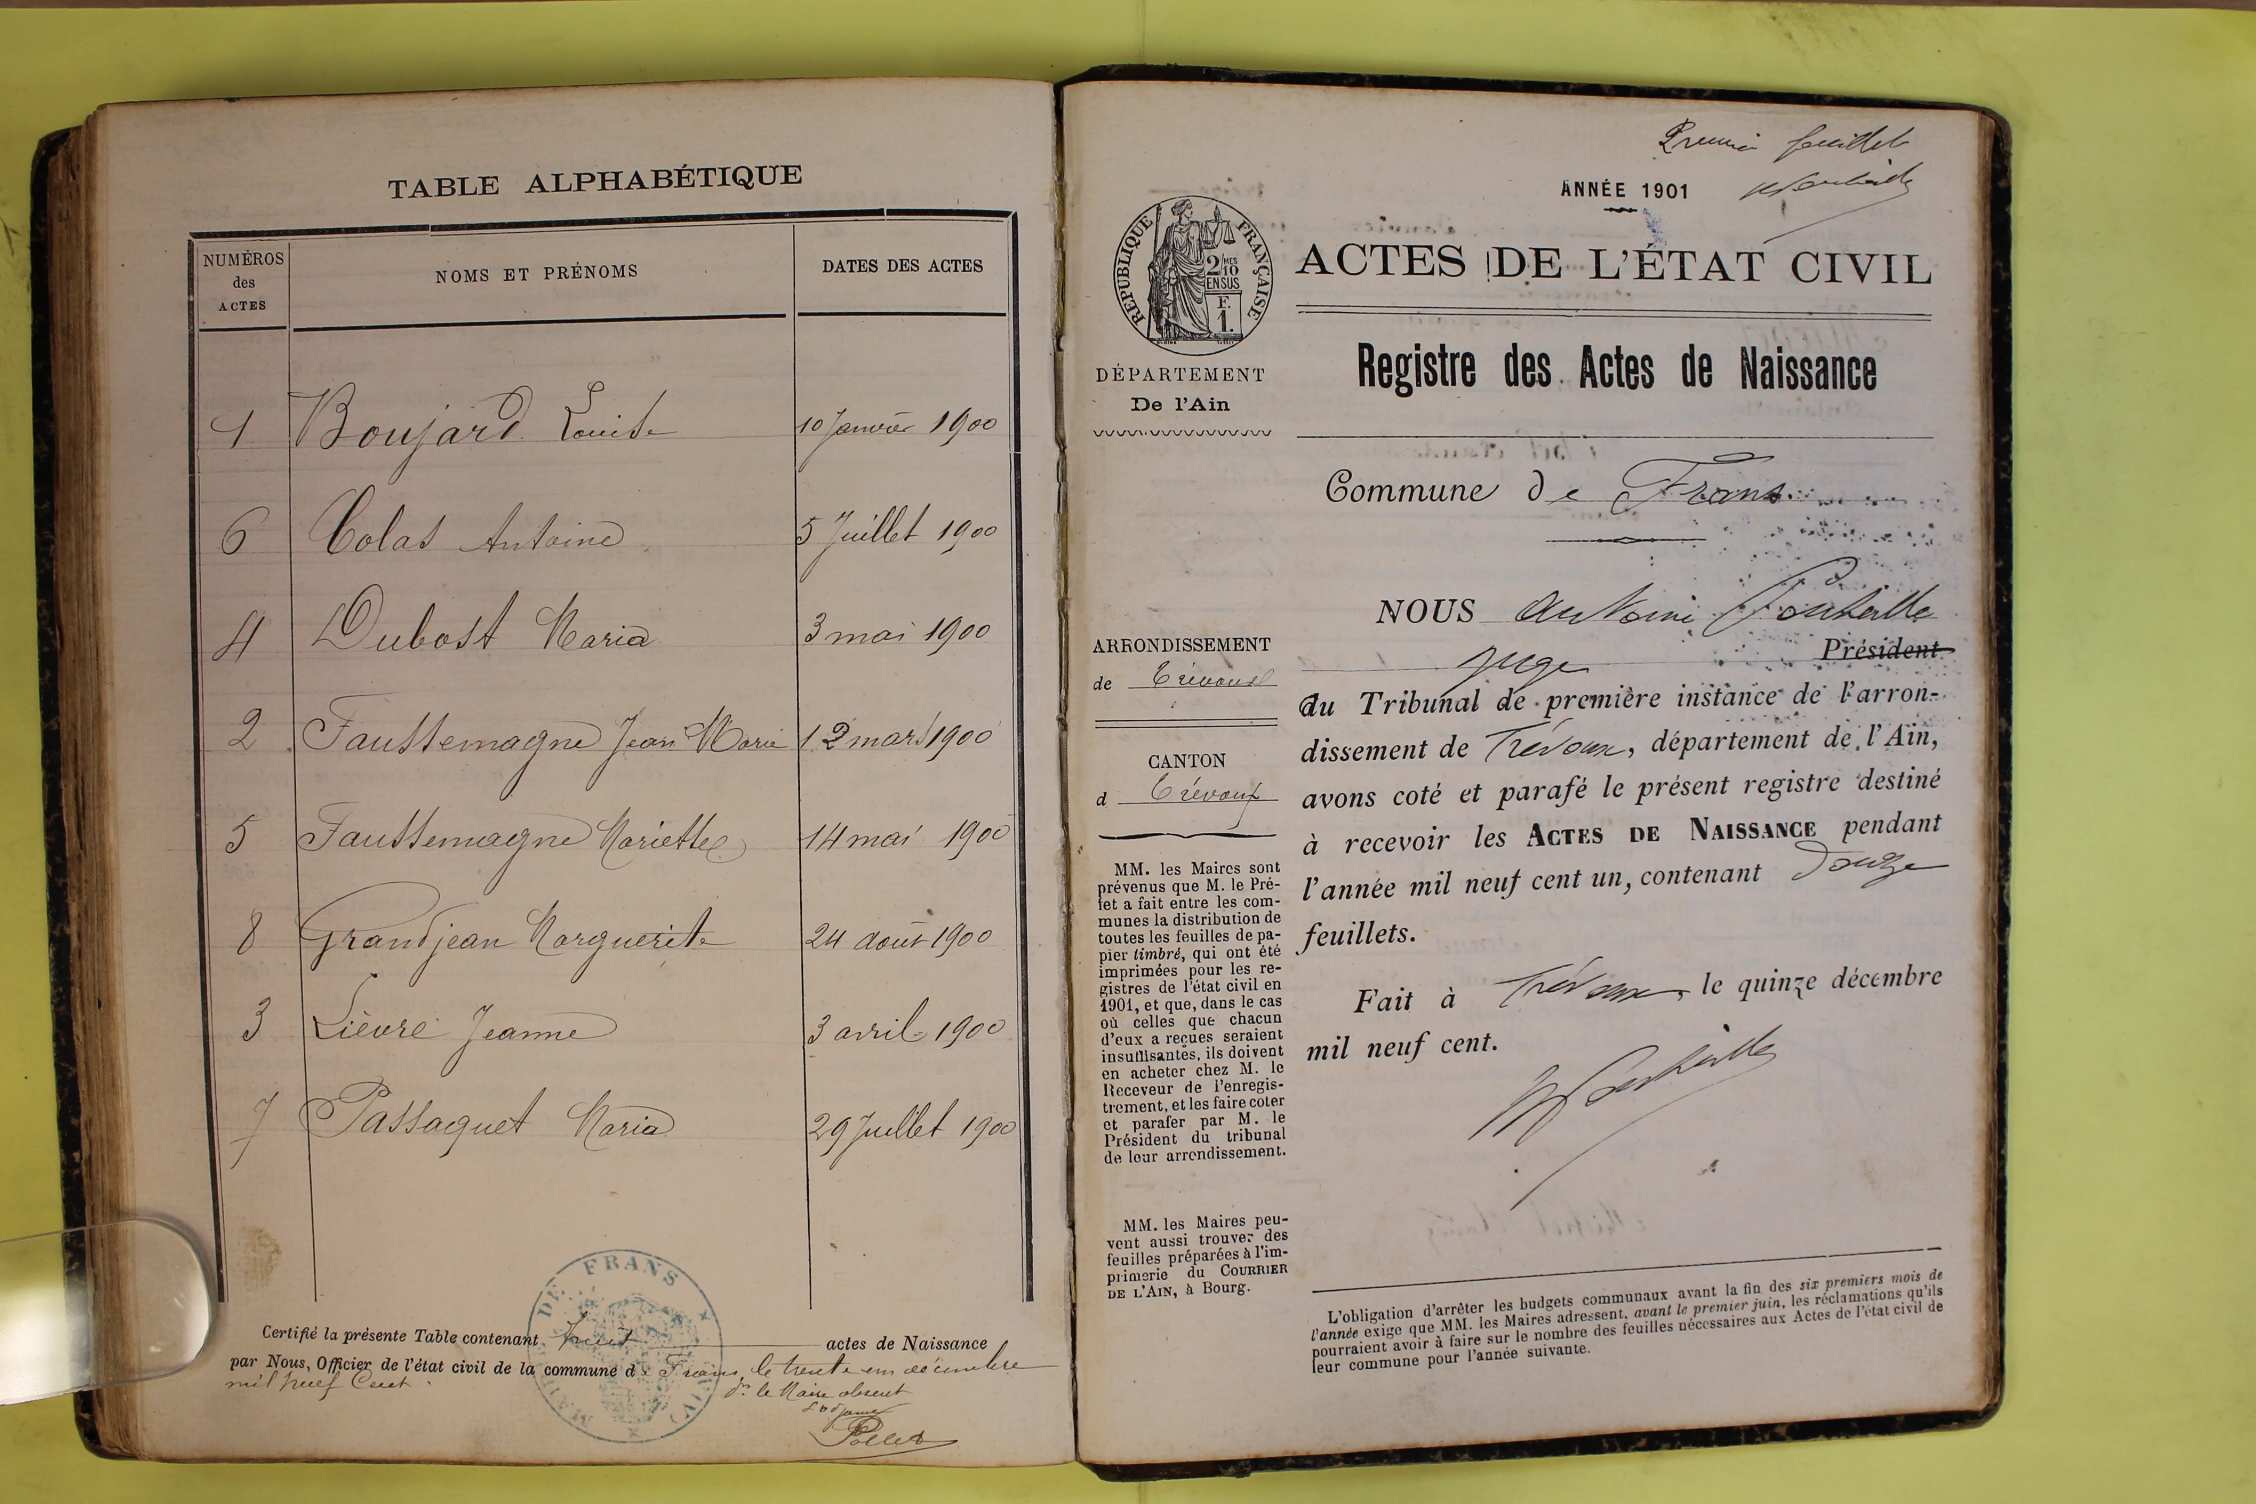 TABLE ALPHABÉTIQUE
NUMÉROS des ACTES
NOMS ET PRÉNOMS
DATES DES ACTES
1 Boujard Louise 10 Janvier 1900
6 Colas Antoine 5 Juillet 1900
4 Dubost Maria 3 mai 1900
2 Faussemagne Jean Marie 12 mars 1900
5 Faussemagne Mariette 14 mai 1900
8 Grandjean Marguerite 24 août 1900
3 Lièvre Jeanne 3 avril 1900
7 Passaquet Maria 29 Juillet 1900
Certifié la présente Table contenant huit actes de Naissance
par Nous, Officier de l'état civil de la commune de Frans, le trente un décembre
mil neuf Cent.
Pr le Maire absent
MAIRIE DE FRANS (AIN)
Premier feuillet
ANNÉE 1901
RÉPUBLIQUE FRANÇAISE
2/10 MES
EN SUS
F.
1.
DÉPARTEMENT
De l'Ain
ACTES DE L'ÉTAT CIVIL
Registre des Actes de Naissance
Commune de Frans
ARRONDISSEMENT
de Trévoux
CANTON
d Trévoux
MM. les Maires sont
prévenus que M. le Pré-
fet a fait entre les com-
munes la distribution de
toutes les feuilles de pa-
pier timbré, qui ont été
imprimées pour les re-
gistres de l'état civil en
1901, et que, dans le cas
où celles que chacun
d'eux a reçues seraient
insuffisantes, ils doivent
en acheter chez M. le
Receveur de l'enregis-
trement, et les faire coter
et parafer par M. le
Président du tribunal
de leur arrondissement.
MM. les Maires peu-
vent aussi trouver des
feuilles préparées à l'im-
primerie du COURRIER
DE L'AIN, à Bourg.
NOUS Antoine
juge Président
du Tribunal de première instance de l'arron-
dissement de Trévoux, département de l'Ain,
avons coté et parafé le présent registre destiné
à recevoir les ACTES DE NAISSANCE pendant
l'année mil neuf cent un, contenant douze
feuillets.
Fait à Trévoux, le quinze décembre
mil neuf cent.
L'obligation d'arrêter les budgets communaux avant la fin des six premiers mois de
l'année exige que MM. les Maires adressent, avant le premier juin, les réclamations qu'ils
pourraient avoir à faire sur le nombre des feuilles nécessaires aux Actes de l'état civil de
leur commune pour l'année suivante.